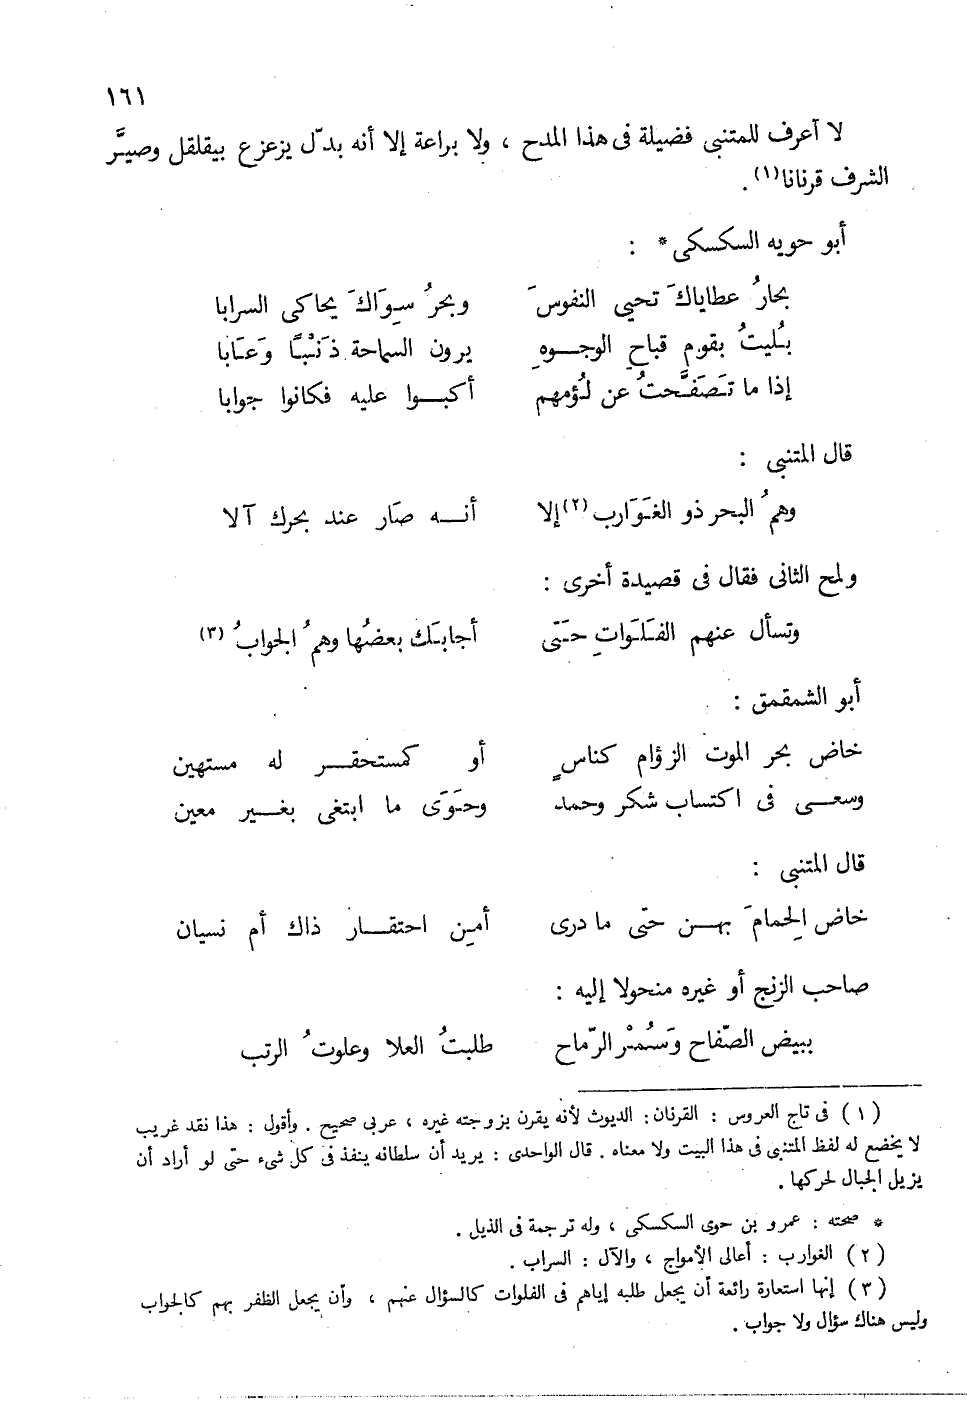 ١٦١
لا أعرف للمتنبى فضيلة فى هذا المدح ، ولا براعة إلا أنه بدّل يزعزع بيقلقل وصيَّر
الشرف قرنانا(١) .
أبو حويه السكسكى* :
بحارُ عطاياكَ تحيى النفوسَ وبحرُ سِوَاكَ يحاكى السرابا
بُليتُ بقومٍ قباحِ الوجـــوهِ يرون السماحة ذَنْبًا وَعَابا
إذا ما تَصَفَّحتُ عن لُؤمهم أكبــوا عليه فكانوا جوابا
قال المتنبى :
وهمُ البحر ذو الغَوَارب(٢) إلا أنــه صَار عند بحرك آلا
ولمح الثانى فقال فى قصيدة أخرى :
وتسأل عنهم الفَلَواتِ حَتّى أجابَك بعضُها وهمُ الجوابُ (٣)
أبو الشمقمق :
خاض بحر الموت الزؤام كناسٍ أو كمستحقــر له مستهين
وسعــى فى اكتساب شكر وحمد وحَوَى ما ابتغى بغــير معين
قال المتنبى :
خاض الحِمامَ بهــن حتّى ما درى أمِن احتقــار ذاك أم نسيان
صاحب الزنج أو غيره منحولا إليه :
ببيض الصّفاح وَسُمْر الرّماح طلبتُ العلا وعلوتُ الرتب
(١) فى تاج العروس : القرنان: الديوث لأنه يقرن بزوجته غيره ، عربى صحيح . وأقول : هذا نقد غريب
لا يخضع له لفظ المتنبى فى هذا البيت ولا معناه . قال الواحدى : يريد أن سلطانه ينفذ فى كل شىء حتّى لو أراد أن
يزيل الجبال لحركها .
* صحته : عمرو بن حوى السكسكى ، وله ترجمة فى الذيل .
(٢) الغوارب : أعالى الأمواج ، والآل : السراب .
(٣) إنها استعارة رائعة أن يجعل طلبه إياهم فى الفلوات كالسؤال عنهم ، وأن يجعل الظفر بهم كالجواب
وليس هناك سؤال ولا جواب .